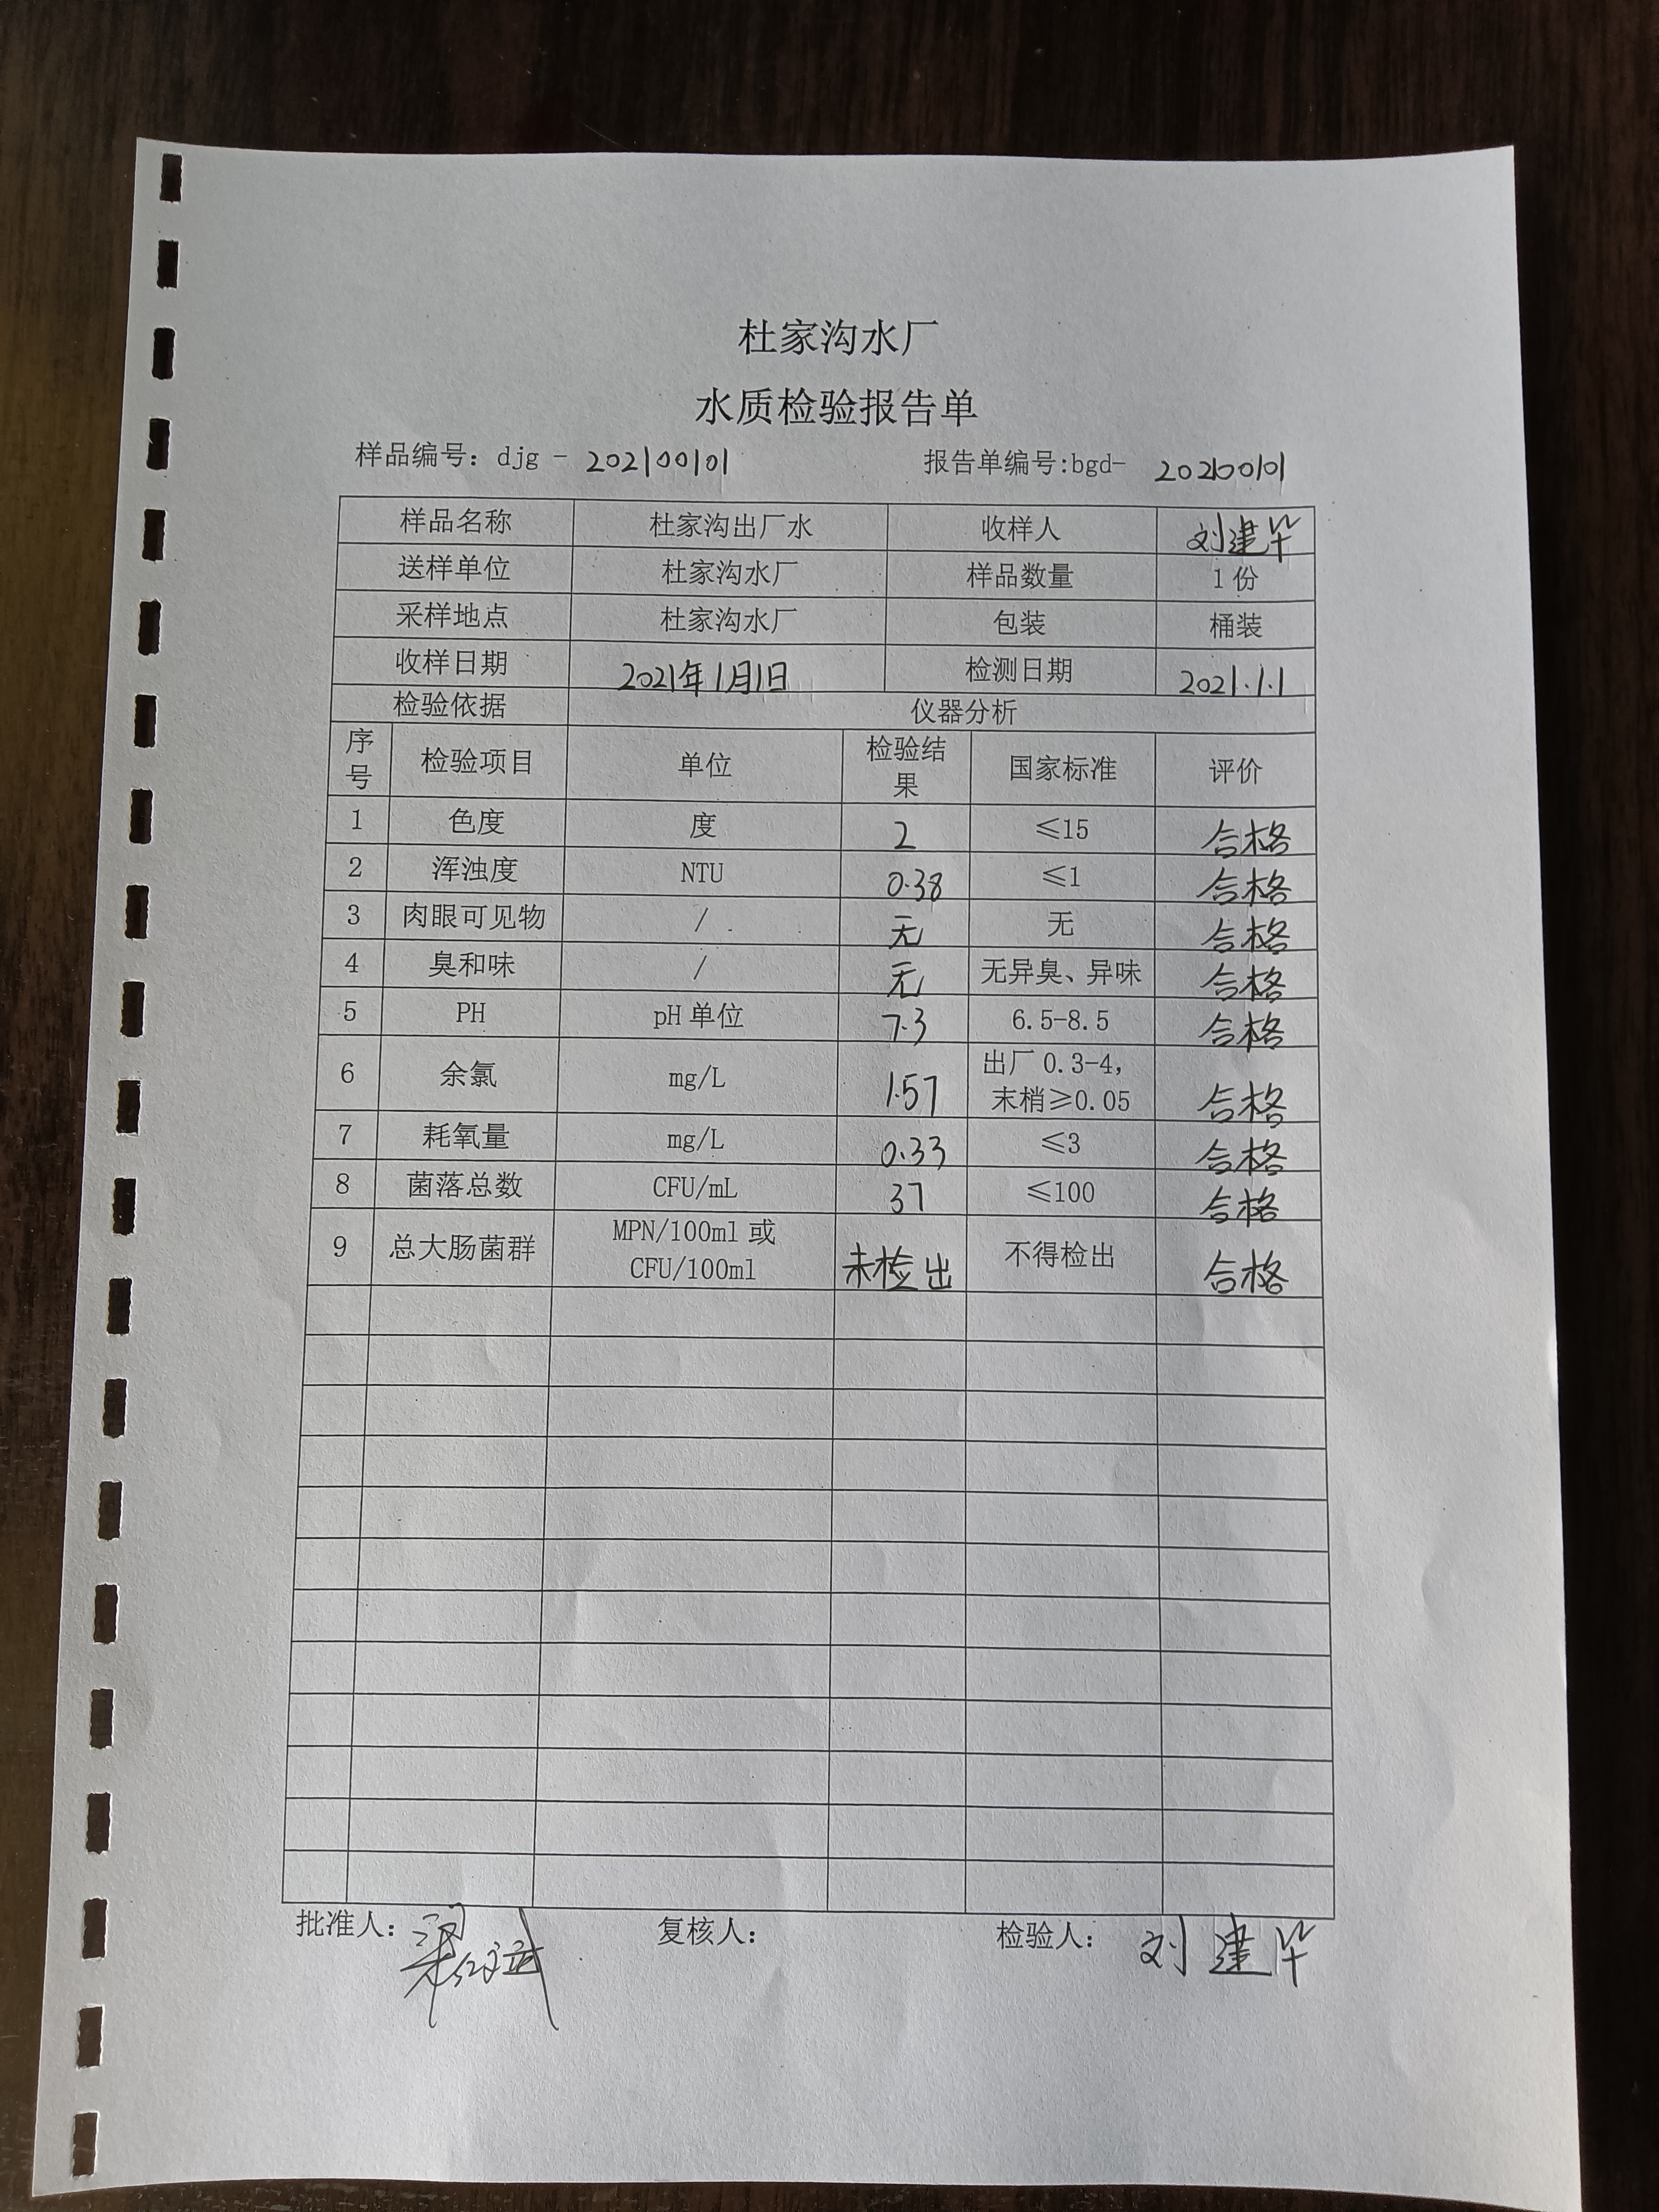 杜家沟水厂
水质检验报告单
样品编号：djg - 202100101 报告单编号:bgd- 202100101
样品名称 杜家沟出厂水 收样人 刘建毕
送样单位 杜家沟水厂 样品数量 1份
采样地点 杜家沟水厂 包装 桶装
收样日期 2021年1月1日 检测日期 2021.1.1
检验依据 仪器分析
序号 检验项目 单位 检验结果 国家标准 评价
1 色度 度 2 ≤15 合格
2 浑浊度 NTU 0.38 ≤1 合格
3 肉眼可见物 / 无 无 合格
4 臭和味 / 无 无异臭、异味 合格
5 PH pH单位 7.3 6.5-8.5 合格
6 余氯 mg/L 1.57 出厂0.3-4，末梢≥0.05 合格
7 耗氧量 mg/L 0.33 ≤3 合格
8 菌落总数 CFU/mL 37 ≤100 合格
9 总大肠菌群 MPN/100ml或CFU/100ml 未检出 不得检出 合格
批准人： 复核人： 检验人： 刘建毕